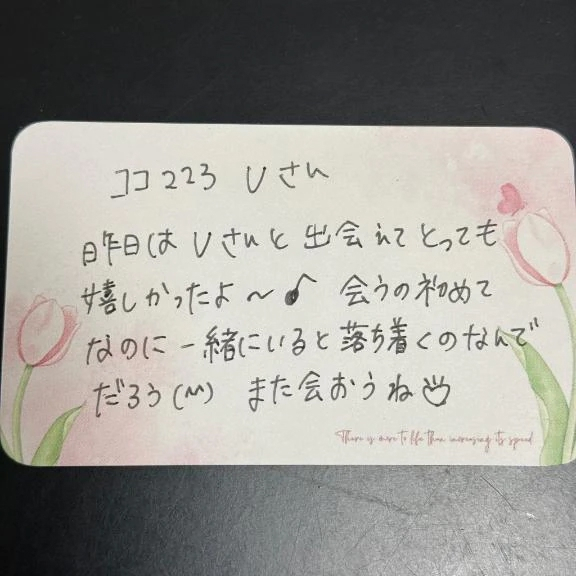 ココ223 Uさん
昨日はUさんと出会えてとっても
嬉しかったよ～♪ 会うの初めて
なのに一緒にいると落ち着くのなんで
だろう(^^) また会おうね
There is more to life than increasing its speed